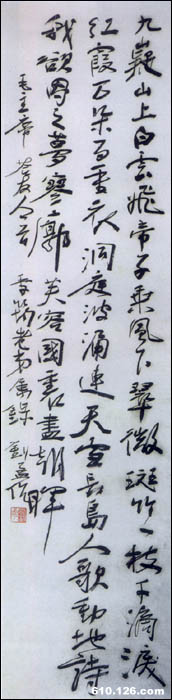 九嶷山上白雲飛帝子乘風下翠微斑竹一枝千滴淚
紅霞万朵百重衣洞庭波涌連天雪長島人歌動地詩
我欲因之夢寥廓芙蓉國裏盡朝暉
毛主席 答友人句 雪筠老弟属錄 劉孟伉
610.126.com